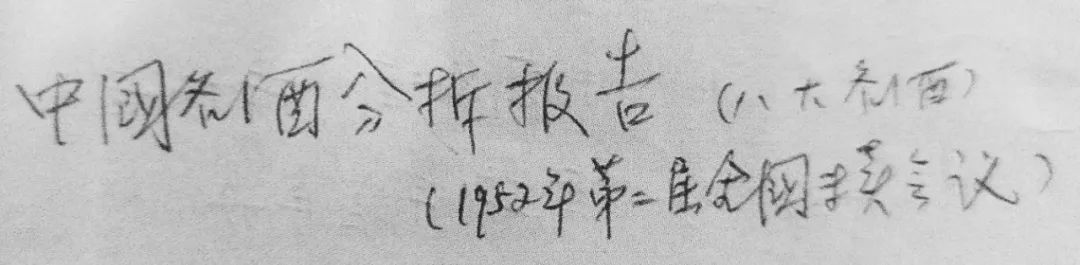 中國名酒分析报告（八大名酒）
（1952年第二届全國专卖会议）